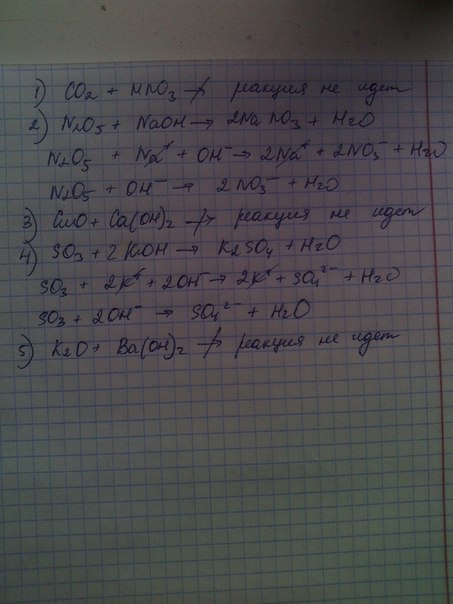 1) CO2 + HNO3 ↛ реакция не идет
2) N2O5 + NaOH → 2NaNO3 + H2O
N2O5 + Na⁺ + OH⁻ → 2Na⁺ + 2NO3⁻ + H2O
N2O5 + OH⁻ → 2NO3⁻ + H2O
3) CuO + Ca(OH)2 ↛ реакция не идет
4) SO3 + 2KOH → K2SO4 + H2O
SO3 + 2K⁺ + 2OH⁻ → 2K⁺ + SO4²⁻ + H2O
SO3 + 2OH⁻ → SO4²⁻ + H2O
5) K2O + Ba(OH)2 ↛ реакция не идет